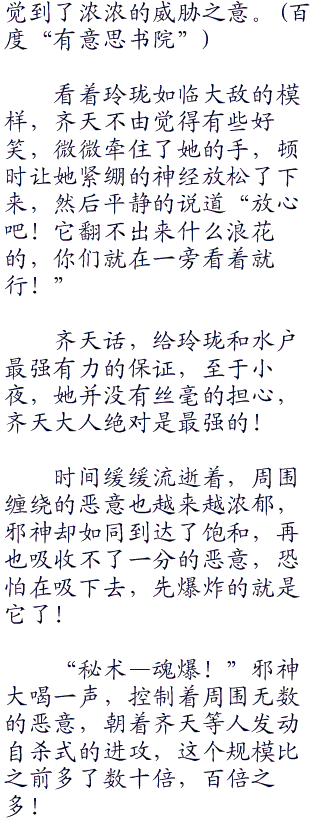 觉到了浓浓的威胁之意。(百
度“有意思书院”)
看着玲珑如临大敌的模
样，齐天不由觉得有些好
笑，微微牵住了她的手，顿
时让她紧绷的神经放松了下
来，然后平静的说道“放心
吧！它翻不出来什么浪花
的，你们就在一旁看着就
行！”
齐天话，给玲珑和水户
最强有力的保证，至于小
夜，她并没有丝毫的担心，
齐天大人绝对是最强的！
时间缓缓流逝着，周围
缠绕的恶意也越来越浓郁，
邪神却如同到达了饱和，再
也吸收不了一分的恶意，恐
怕在吸下去，先爆炸的就是
它了！
“秘术—魂爆！”邪神
大喝一声，控制着周围无数
的恶意，朝着齐天等人发动
自杀式的进攻，这个规模比
之前多了数十倍，百倍之
多！